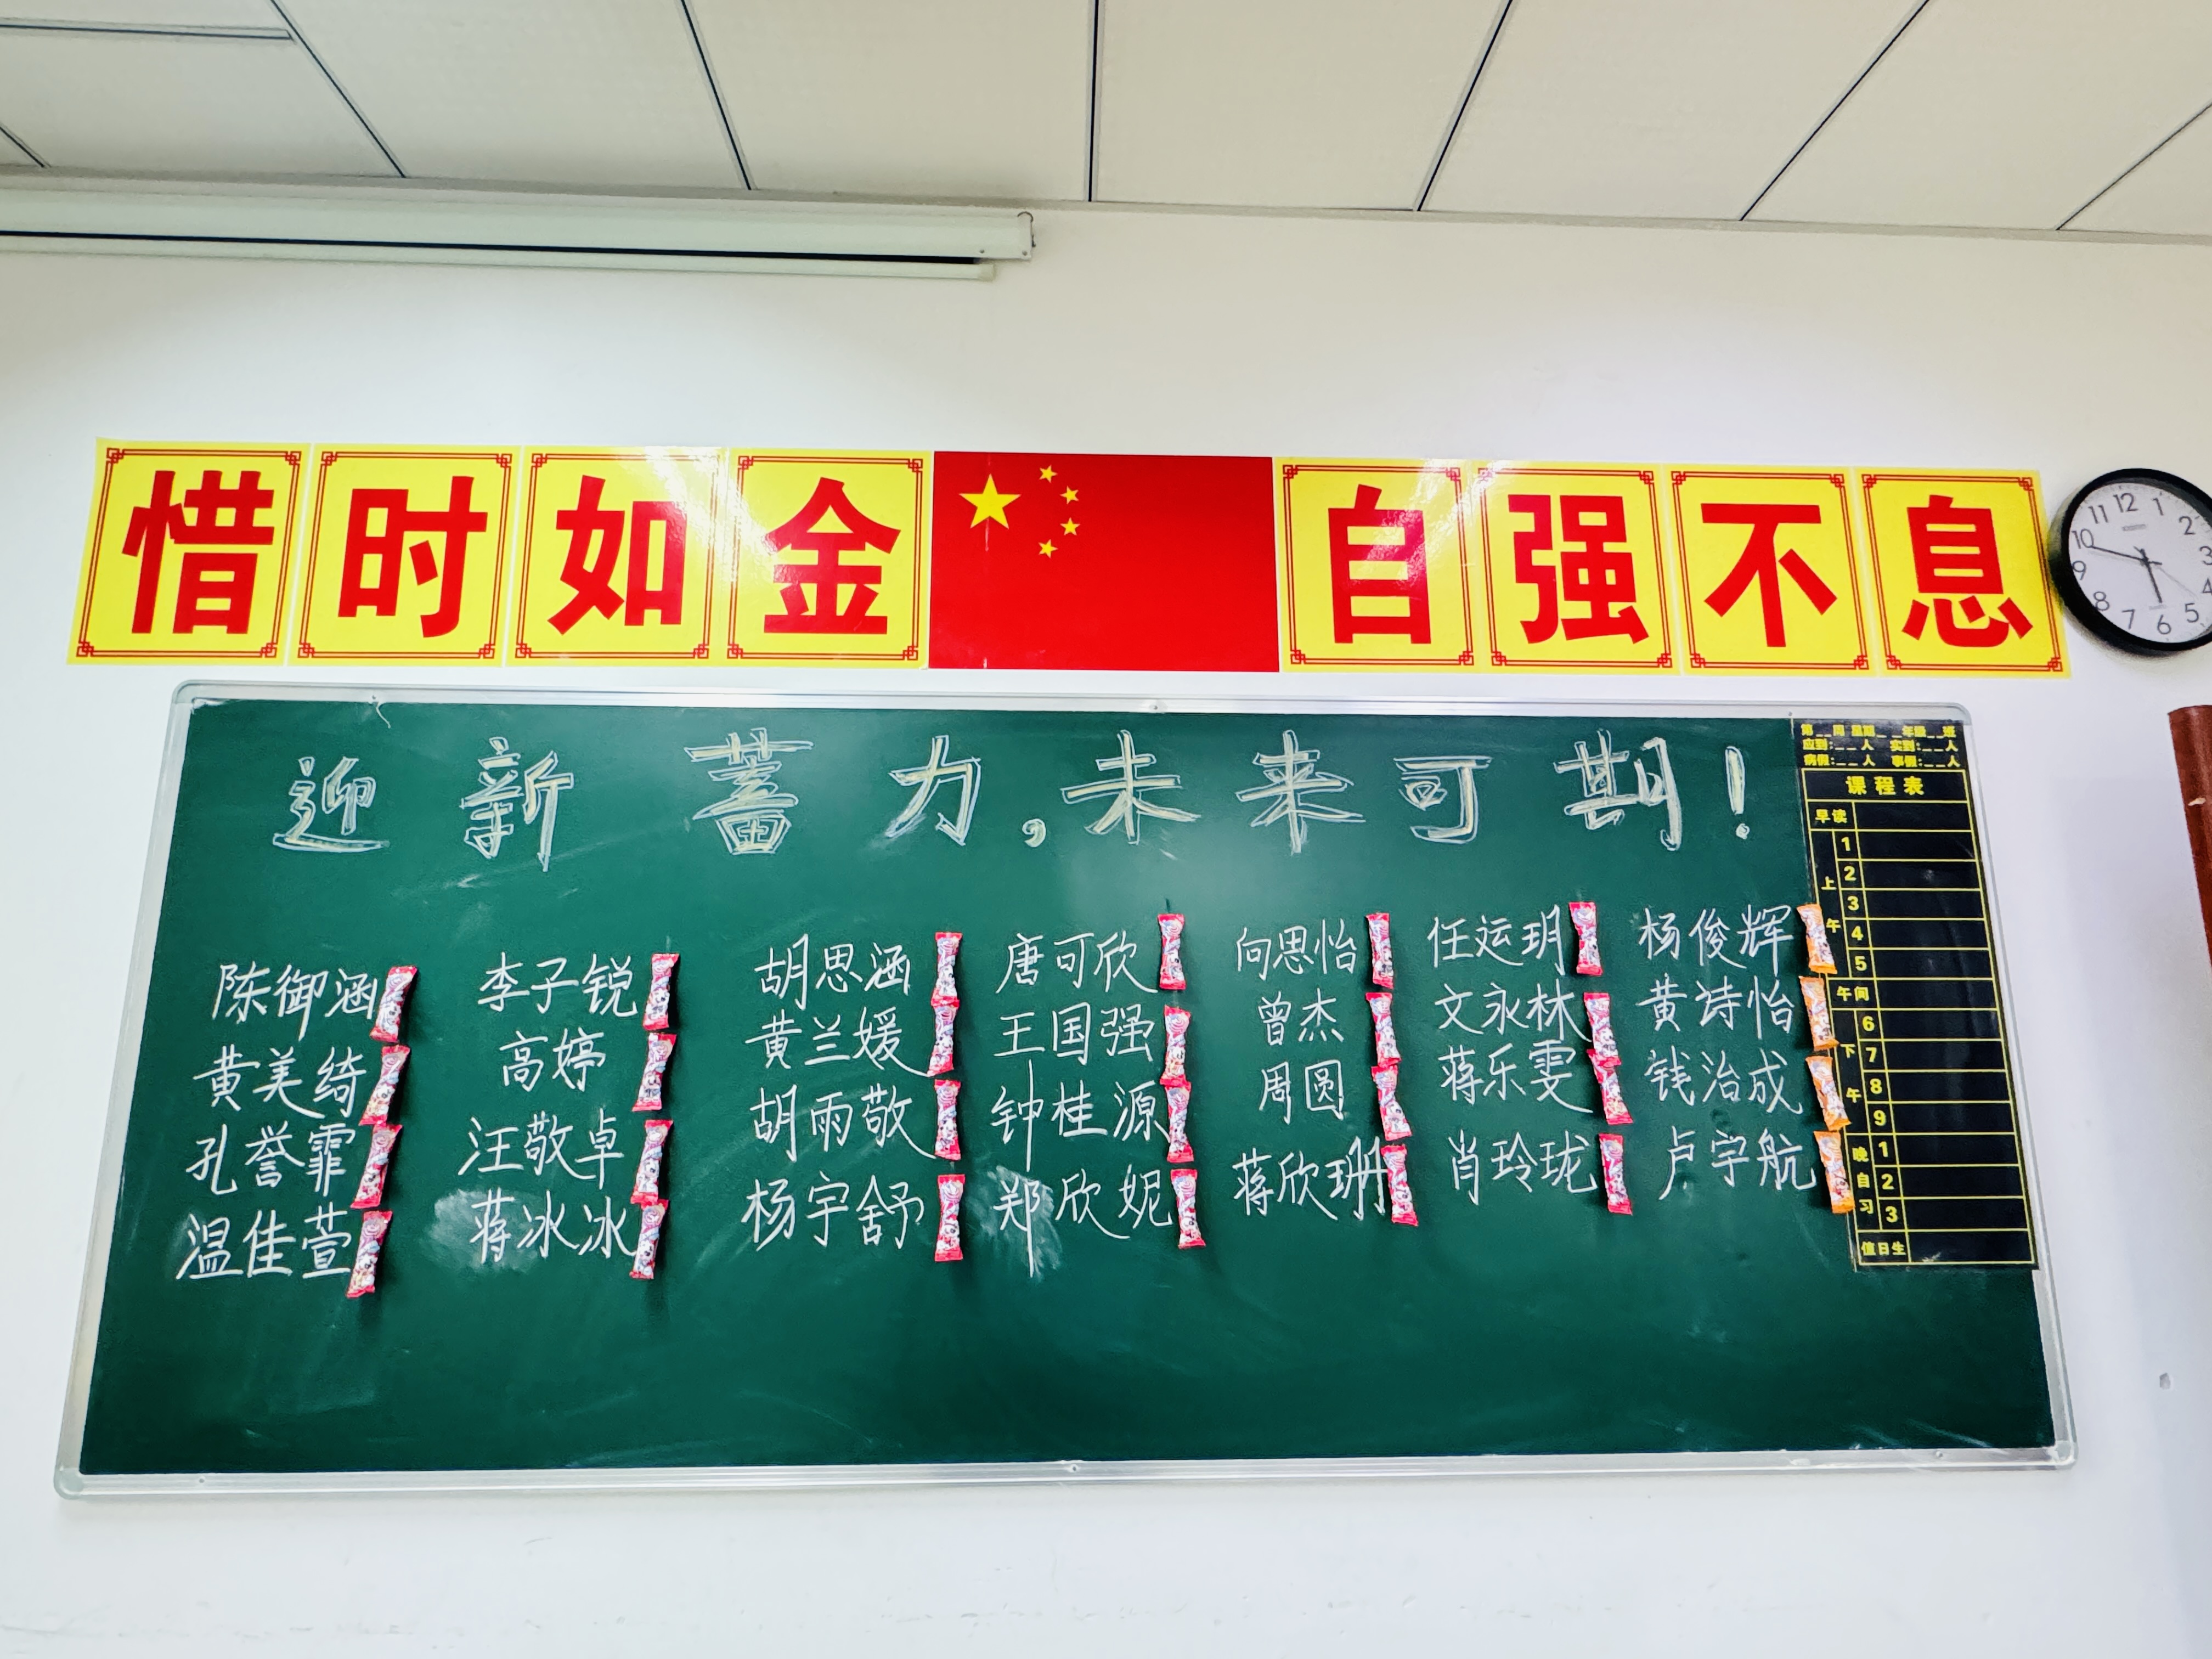 惜时如金 自强不息
迎新蓄力,未来可期!
陈御涵 李子锐 胡思涵 唐可欣 向思怡 任运玥 杨俊辉
黄美绮 高婷 黄兰媛 王国强 曾杰 文永林 黄诗怡
孔誉霏 汪敬卓 胡雨敬 钟桂源 周圆 蒋乐雯 钱治成
温佳萱 蒋冰冰 杨宇舒 郑欣妮 蒋欣珊 肖玲珑 卢宇航
第__周 星期__ __年级__班
应到:__人 实到:__人
病假:__人 事假:__人
课程表
早读
上午
1
2
3
4
5
午间
下午
6
7
8
9
晚自习
1
2
3
值日生
12
1
2
3
4
5
6
7
8
9
10
11